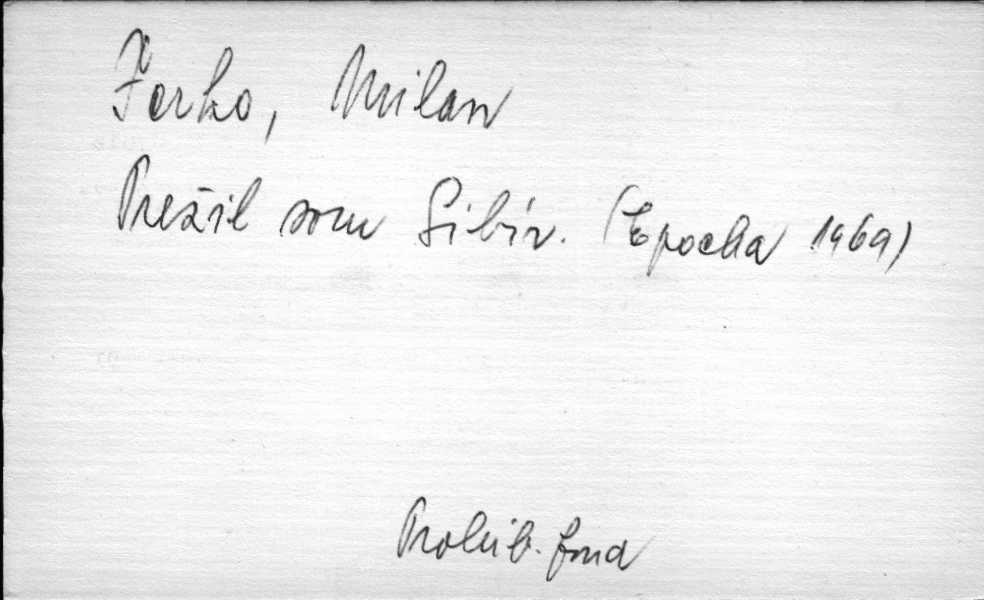 Ferko, Milan
Prežil som Sibír. (Epocha 1969)
Prohib. fond